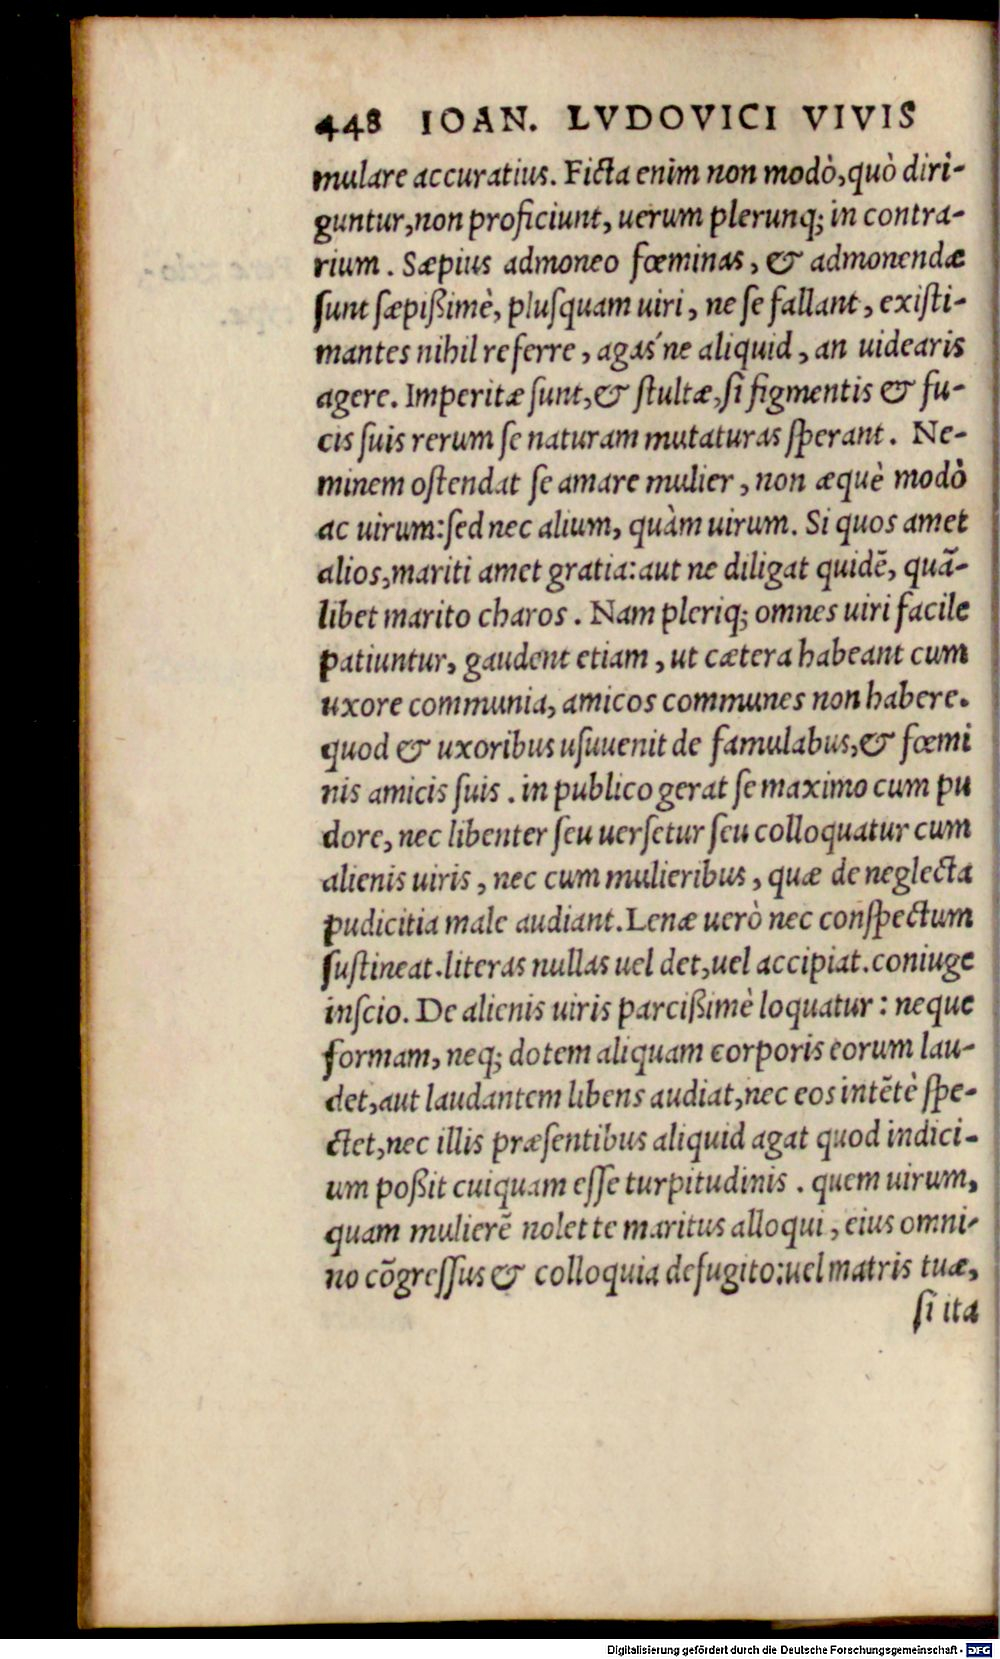 448 IOAN. LVDOVICI VIVIS
mulare accuratius. Ficta enim non modò, quò diri-
guntur, non proficiunt, uerum plerunq; in contra-
rium. Sæpius admoneo fœminas, & admonendæ
sunt sæpißimè, plusquam uiri, ne se fallant, existi-
mantes nihil referre, agas´ne aliquid, an uidearis
agere. Imperitæ sunt, & stultæ, si figmentis & fu-
cis suis rerum se naturam mutaturas sperant. Ne-
minem ostendat se amare mulier, non æquè modò
ac uirum: sed nec alium, quàm uirum. Si quos amet
alios, mariti amet gratia: aut ne diligat quidē, quā-
libet marito charos. Nam pleriq; omnes uiri facile
patiuntur, gaudent etiam, ut cætera habeant cum
uxore communia, amicos communes non habere.
quod & uxoribus usuuenit de famulabus, & fœmi
nis amicis suis. in publico gerat se maximo cum pu
dore, nec libenter seu uersetur seu colloquatur cum
alienis uiris, nec cum mulieribus, quæ de neglecta
pudicitia male audiant. Lenæ uerò nec conspectum
sustineat. literas nullas uel det, uel accipiat. coniuge
inscio. De alienis uiris parcißimè loquatur: neque
formam, neq; dotem aliquam corporis eorum lau-
det, aut laudantem libens audiat, nec eos intētè spe-
ctet, nec illis præsentibus aliquid agat quod indici-
um poßit cuiquam esse turpitudinis. quem uirum,
quam mulierē nolet te maritus alloqui, eius omni-
no cōgressus & colloquia defugito: uel matris tuæ,
si ita
Digitalisierung gefördert durch die Deutsche Forschungsgemeinschaft - DFG